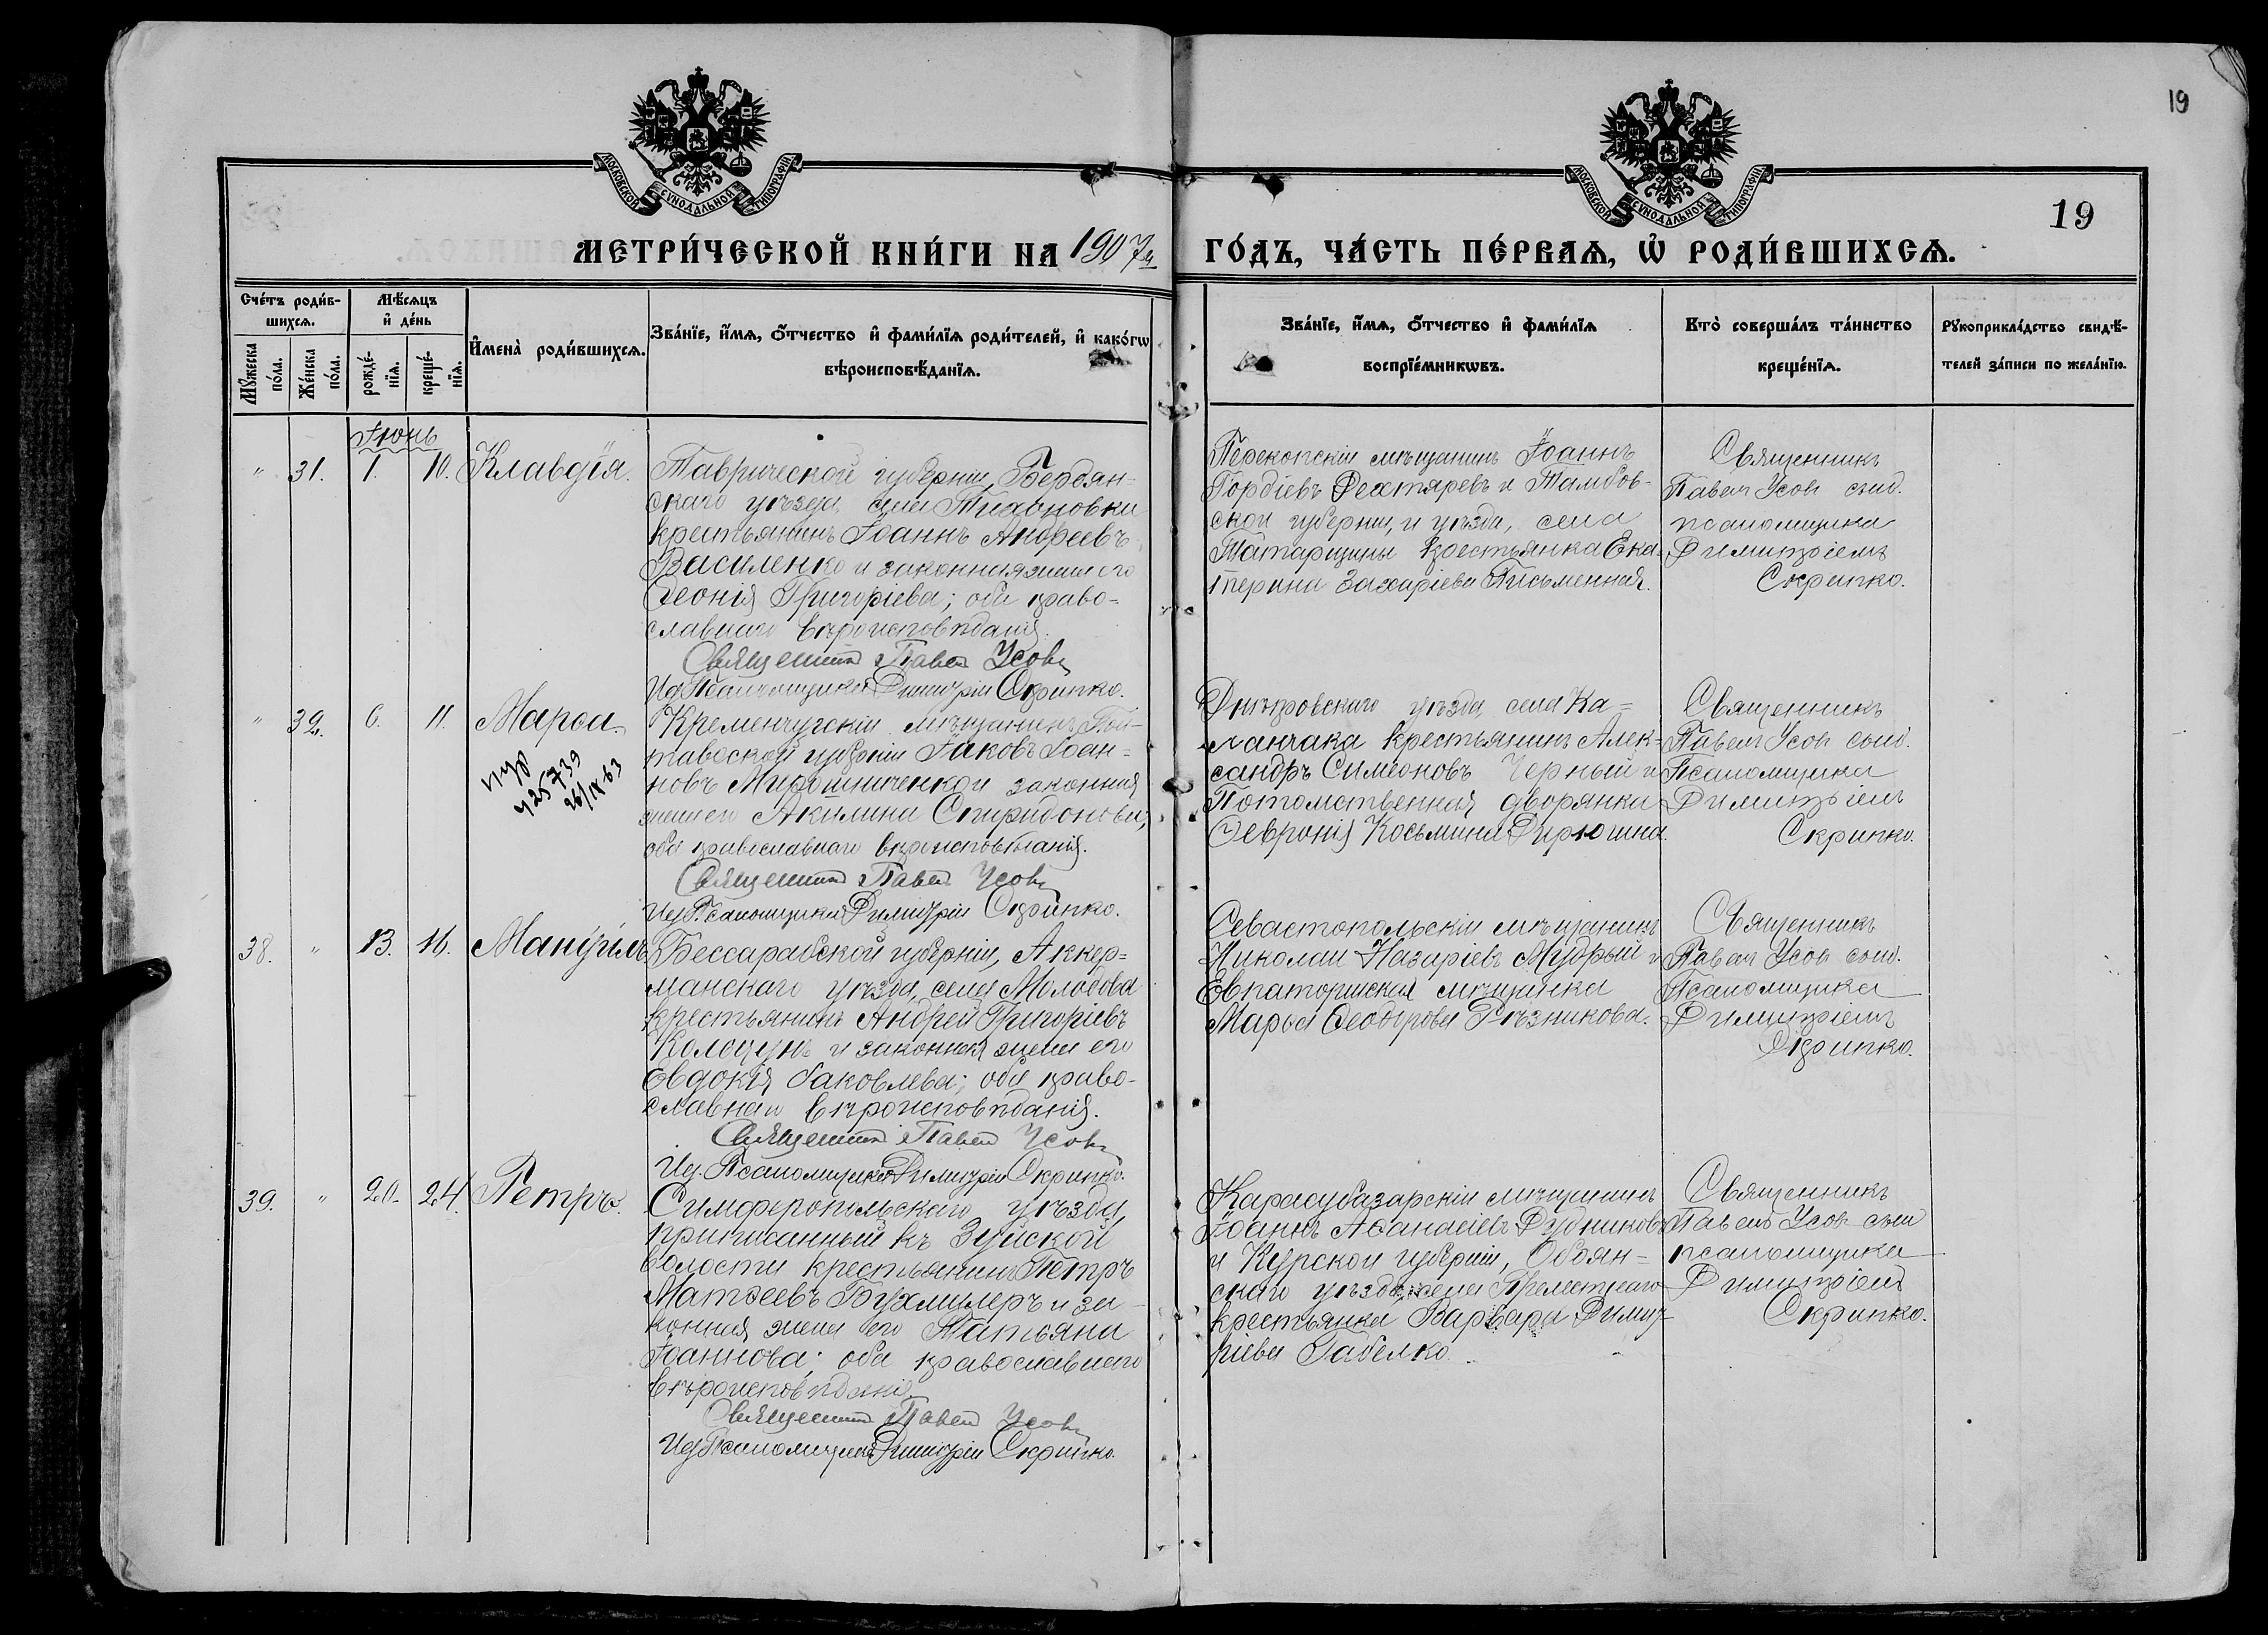 19
19
МОСКОВСКОЙ СѴНОДАЛЬНОЙ ТИПОГРАФІИ
МОСКОВСКОЙ СѴНОДАЛЬНОЙ ТИПОГРАФІИ
МЕТРИ́ЧЕСКОЙ КНИ́ГИ НА 1907й ГО́ДЪ, ЧА́СТЬ ПЕ́РВАѦ, Ѡ҆ РОДИ́ВШИХСѦ.
Сче́тъ роди́в-
шихсѧ.
Мꙋ́жеска
по́ла.
Же́нска
по́ла.
Мѣ́сѧцъ
и҆ де́нь
рожде́-
нїѧ.
креще́-
нїѧ.
И҆мена̀ роди́вшихсѧ.
Зва́нїе, и҆́мѧ, ѻ҆́тчество и҆ фами́лїѧ роди́телей, и҆ како́гѡ
вѣроисповѣ́данїѧ.
Зва́нїе, и҆́мѧ, ѻ҆́тчество и҆ фами́лїѧ
воспрїе́мникѡвъ.
Кто̀ соверша́лъ та́инство
креще́нїѧ.
Рꙋкоприкла́дство свидѣ́-
телей за́писи по жела́нїю.
Іюнь
" 31. 1. 10. Клавдія.
Таврической губерніи, Бердян-
скаго уѣзда, села Тихоновки
крестьянинъ Іоаннъ Андреевъ
Василенко и законная жена его
Ѳеонія Григоріева; оба право-
славнаго вѣроисповѣданія.
Священникъ Павелъ Усовъ
Ид. Псаломщика Димитрій Скрипко.
Перекопскій мѣщанинъ Іоаннъ
Гордіевъ Дехтяревъ и Тамбов-
ской губерніи, и уѣзда, села
Татарщины крестьянка Ека-
терина Захаріева Письменная.
Священникъ
Павелъ Усовъ съ ид.
псаломщика
Димитріемъ
Скрипко.
" 32. 6. 11. Марѳа.
425739
26/IX 63
Кременчугскій мѣщанинъ Пол-
тавской губерніи Іаковъ Іоан-
новъ Мирошниченко и законная
жена его Акилина Спиридонова,
оба православнаго вѣроисповѣданія.
Священникъ Павелъ Усовъ
Ид. Псаломщика Димитрій Скрипко.
Днѣпровскаго уѣзда, села Ка-
ланчака крестьянинъ Алек-
сандръ Симеоновъ Черный и
Потомственная дворянка
Ѳевронія Косьмина Дирюгина.
Священникъ
Павелъ Усовъ съ ид.
Псаломщика
Димитріемъ
Скрипко.
38. " 13. 16. Мануилъ
Бессарабской губерніи, Аккер-
манскаго уѣзда, села Молодова
крестьянинъ Андрей Григоріевъ
Колоцунъ и законная жена его
Евдокія Іаковлева; оба право-
славнаго вѣроисповѣданія.
Священникъ Павелъ Усовъ
Ид. Псаломщика Димитрій Скрипко.
Севастопольскій мѣщанинъ
Николай Назаріевъ Мудрый и
Евпаторійская мѣщанка
Марья Ѳеодорова Рѣзникова.
Священникъ
Павелъ Усовъ съ ид.
Псаломщика
Димитріемъ
Скрипко.
39. " 20. 24. Петръ.
Симферопольскаго уѣзда,
приписанный къ Зуйской
волости крестьянинъ Петръ
Матѳеевъ Бухмилеръ и за-
конная жена его Татьяна
Іоаннова; оба православнаго
вѣроисповѣданія.
Священникъ Павелъ Усовъ
Ид. Псаломщика Димитрій Скрипко.
Карасубазарскій мѣщанинъ
Іоаннъ Аѳанасіевъ Дудниковъ
и Курской губерніи, Обоян-
скаго уѣзда, села
крестьянка Варвара Димит-
ріева Габелко.
Священникъ
Павелъ Усовъ съ ид
псаломщика
Димитріемъ
Скрипко.